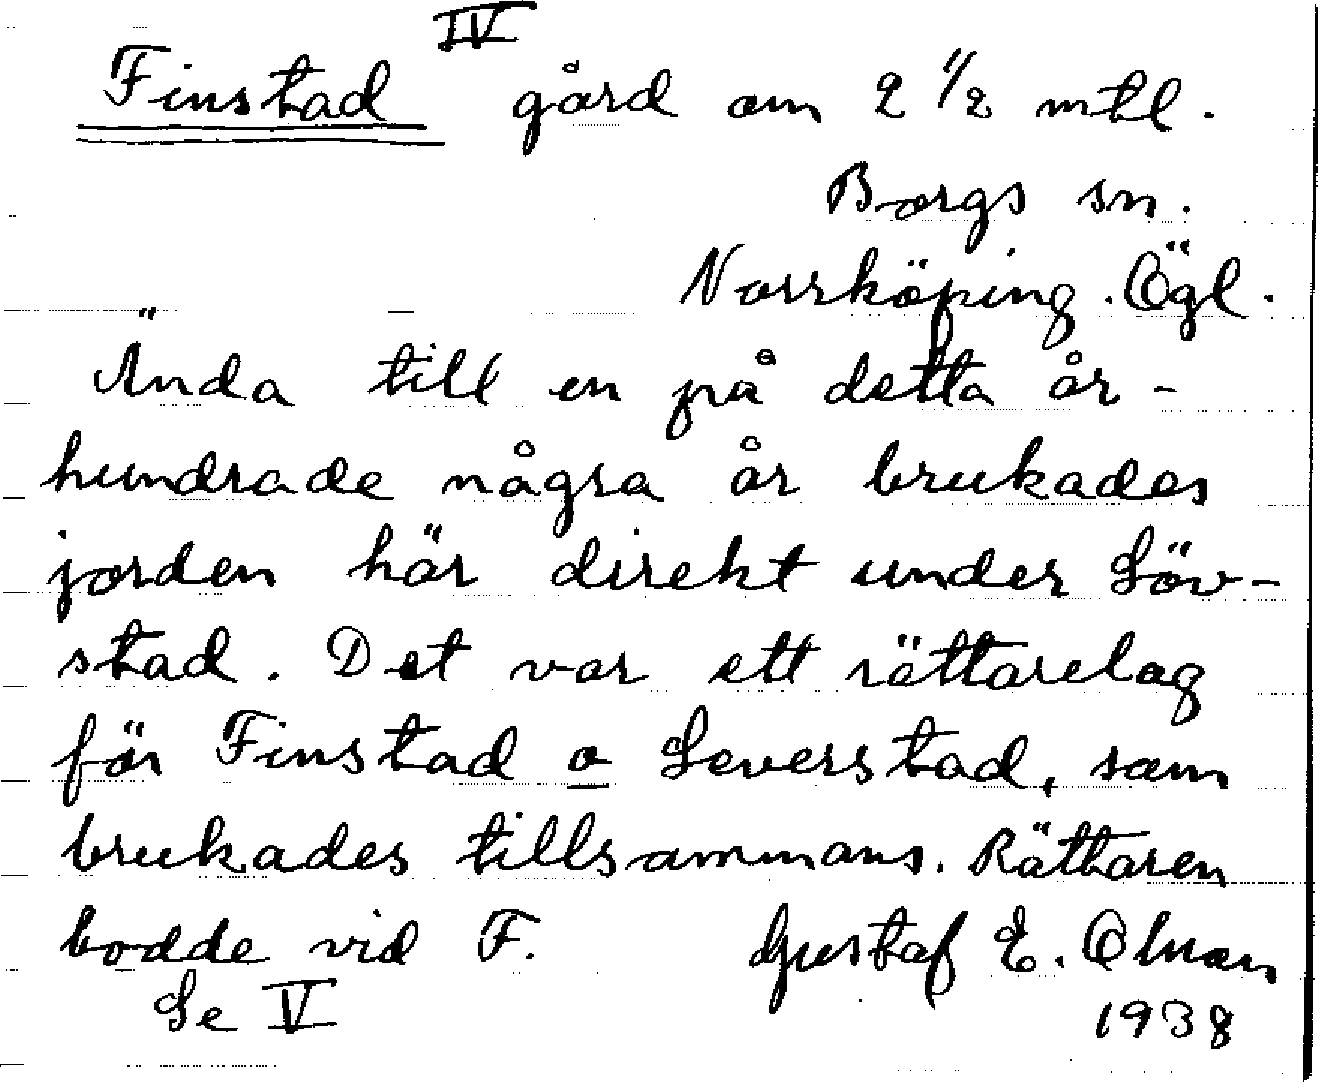 IV
Finstad gård om 2 1/2 mtl.
Borgs sn.
Norrköping. Ögl.
Ända till en på detta år-
hundrade några år brukades
jorden här direkt under Löv-
stad. Det var ett rättarelag
för Finstad o Leverstad, som
brukades tillsammans. Rättaren
bodde vid F. Gustaf E. Olman
Se V 1938